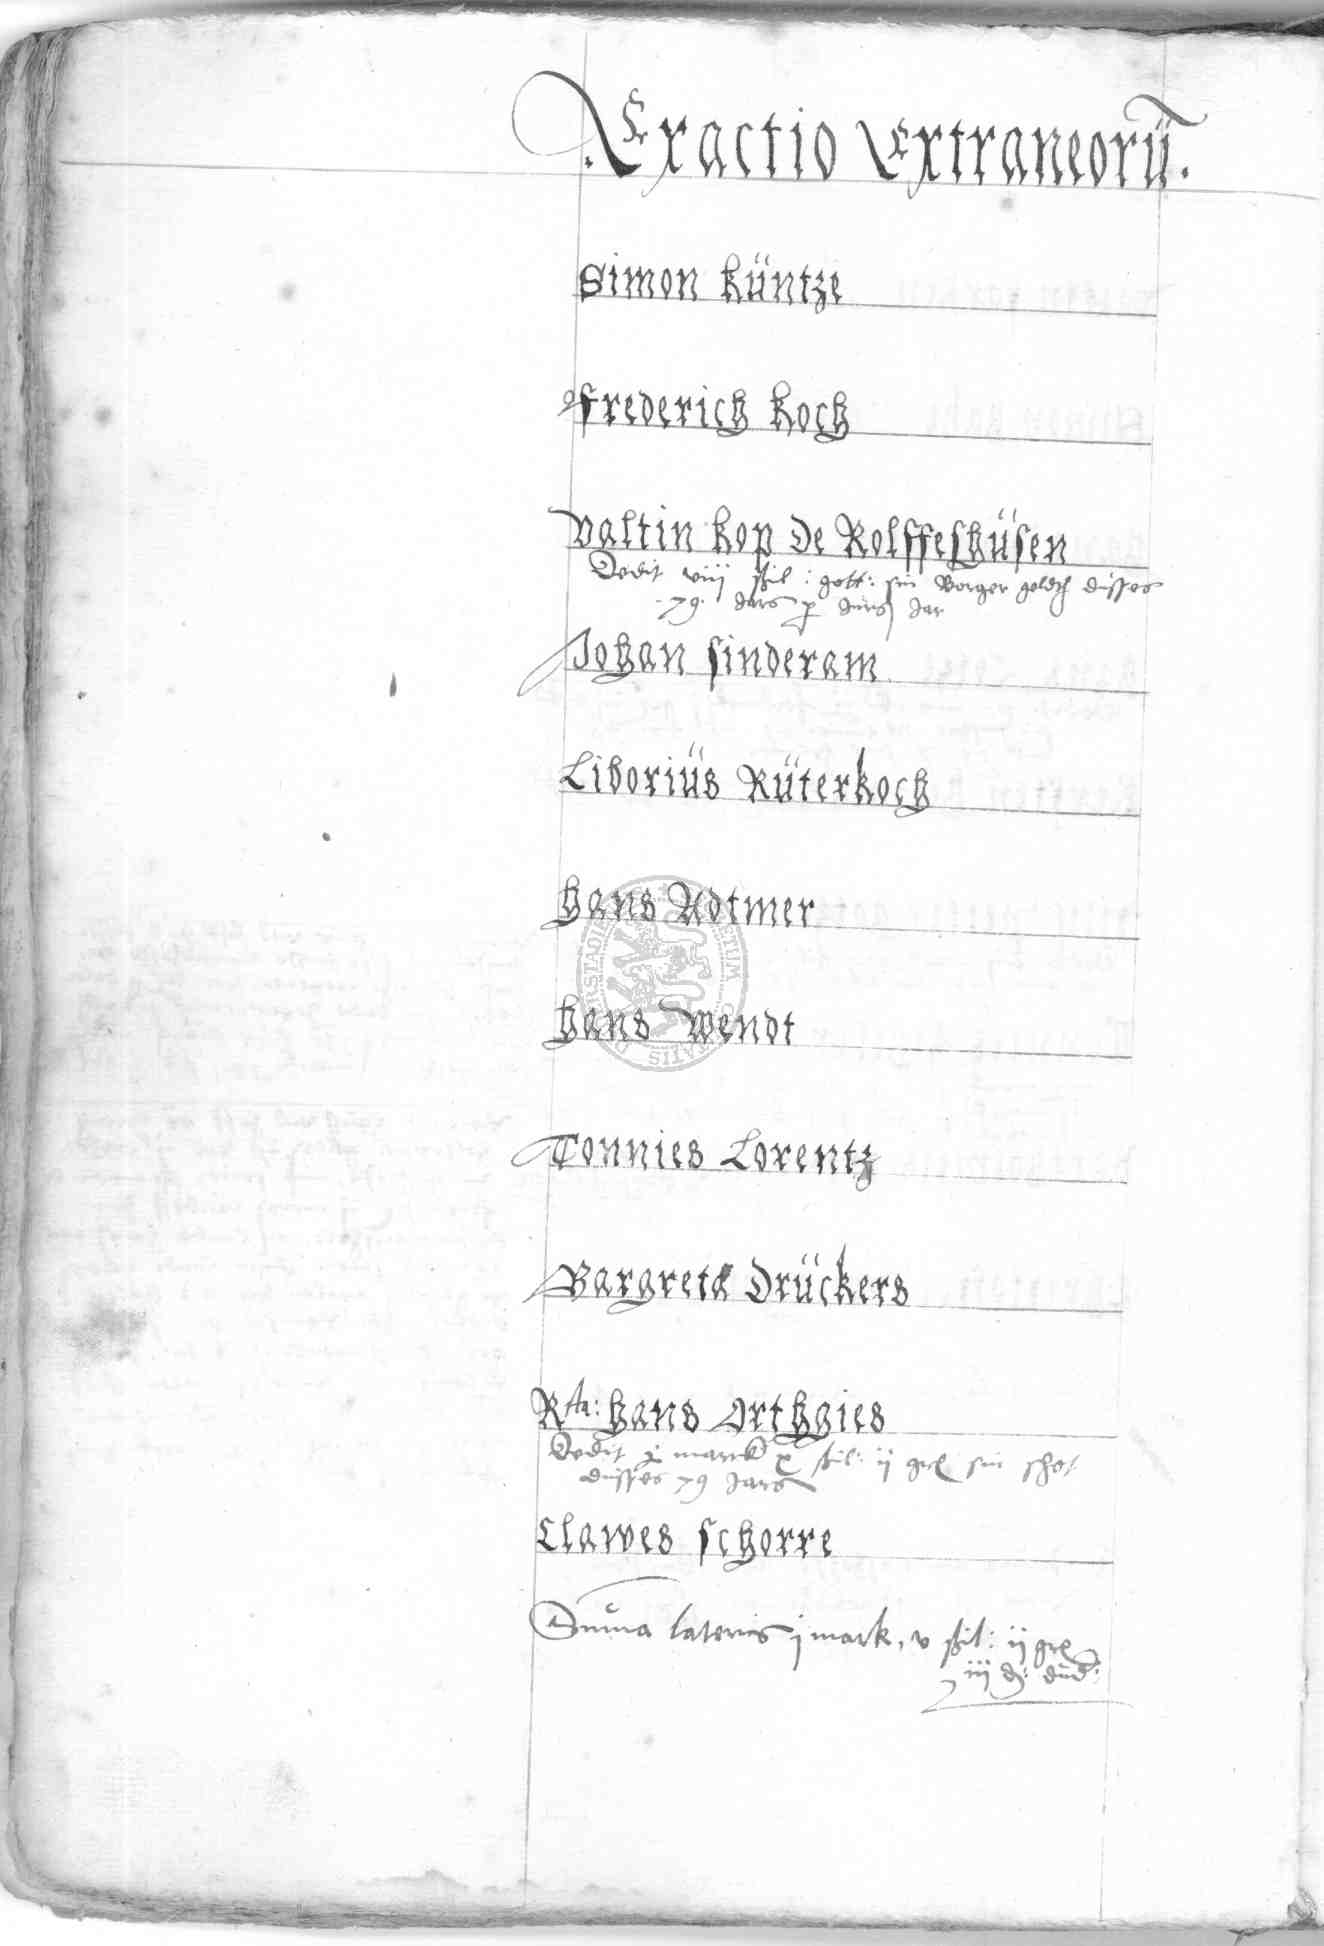 Exactio Extraneorū.
Simon Küntze
Frederich Koch
Valtin Kop de Rolffeshüsen
Dedit viij ßil: gott: sin Borger geldt düsses
.79. Jars
Johan Sinderam
Liborius Rüterkoch
Hans Adtmer
Hans Wendt
Tonnies Lorentz
Bargreta Drückers
Rta: Hans Orthgies
Dedit j marck x ßil: ij gr sin schot
düsses 79 Jars
Clawes Schorre
Suma lateris j mark, v ßil: ij gr
iij d: dud: